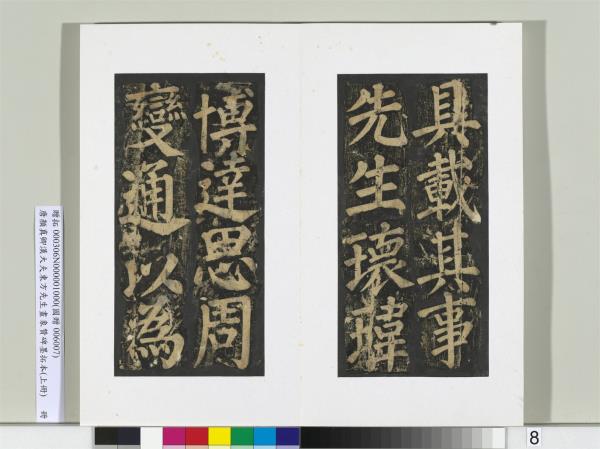 具載其事
先生瓌瑋
博達思周
變通以為
贈拓 000306N000001000(國贈 006007)
唐顏真卿漢大夫東方先生畫象贊碑墨拓本(上冊) 冊
8